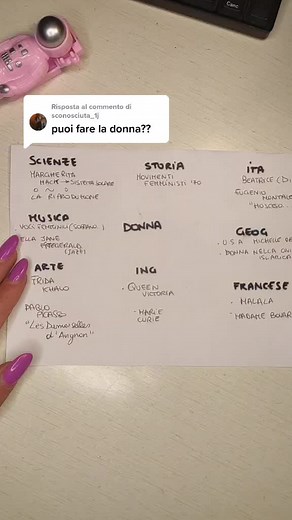 Risposta al commento di
sconosciuta_1j
puoi fare la donna??
SCIENZE
MARGHERITA
HACK → SISTEMA SOLARE
O ~ O
LA RIPRODUZIONE
STORIA
MOVIMENTI
FEMMINISTI '70
ITA
BEATRICE (DI
EUGENIO
MONTALE
MUSICA
VOCI FEMMINILI (SOPRANO)
ELLA JANE
FITZGERALD
(JAZZ)
DONNA
GEOG
U.S.A MICHELLE
DONNA NELLA
ISLAMICA
ARTE
FRIDA
KHALO
PABLO
PICASSO
"Les Demoiselles
d'Avignon"
ING
• QUEEN
VICTORIA
• MARIE
CURIE
FRANCESE
• MALALA
• MADAME BOVAR